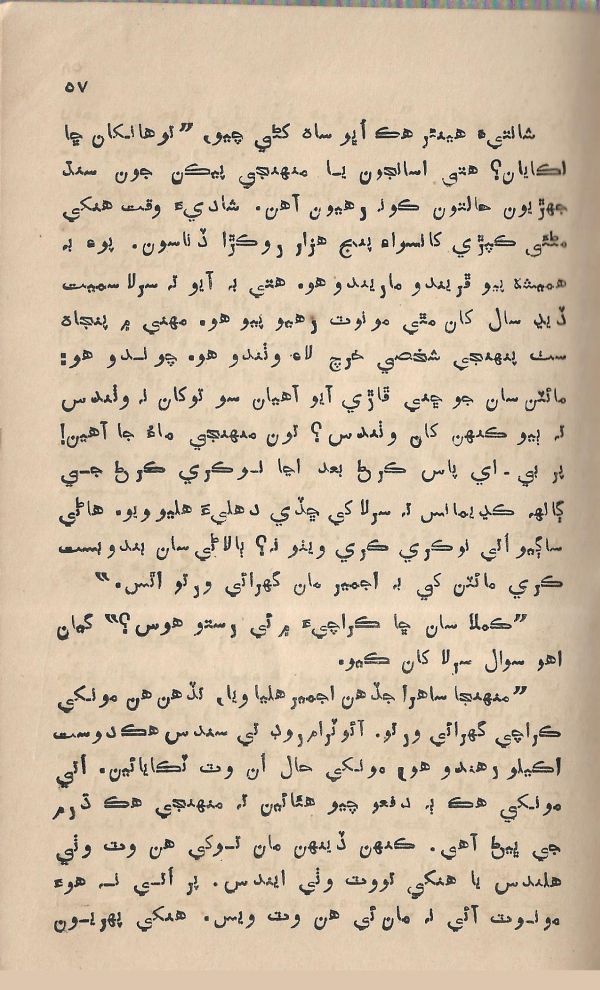 ٥٧
شانتيءَ هينئر هڪ اُڀو ساهه کڻي چيو، ”توهانکان ڇا
لڪايان؟ هتي اسانجون يا منهنجي پيڪن جون سنڌ
جهڙيون حالتون ڪونه رهيون آهن. شاديءَ وقت هنکي
مٿئي ڪپڙي کانسواءِ پنج هزار روڪڙا ڏناسون. پوءِ به
هميشه پيو ڦريندو ماريندو هو. هتي به آيو ته سرلا سميت
ڏيڍ سال کان مٿي مونوٽ رهيو پيو هو. مهني ۾ پنجاهه
سٺ پنهنجي شخصي خرچ لاءِ وٺندو هو. چوندو هو:
مائٽن سان جو ڇني ڦاڙي آيو آهيان سو توکان نه وٺندس
ته ٻيو ڪنهن کان وٺندس؟ تون منهنجي ماءُ جا آهين!
پر بي. اي پاس ڪرڻ بعد اڃا نوڪري ڪرڻ جي
ڳالهه ڪڍيمانس ته سرلا کي ڇڏي دهليءَ هليو ويو. هاڻي
ساڳيو اُتي نوڪري ڪري ويٺو نه؟ ٻالاڻي سان بندوبست
ڪري مائٽن کي به اجمير مان گهرائي ورتو اٿس.“
”ڪملا سان ڇا ڪراچيءَ ۾ ئي رستو هوس؟“ گمان
اهو سوال سرلا کان ڪيو.
”منهنجا ساهرا جڏهن اجمير هليا ويا، تڏهن هن مونکي
ڪراچي گهرائي ورتو. آئوٽرام روڊ تي سندس هڪ دوست
اڪيلو رهندو هو، مونکي حال اُن وٽ ٽڪايائين. اُتي
مونکي هڪ ٻه دفعو چيو هئائين ته منهنجي هڪ ڌرم
جي ڀيڻ آهي. ڪنهن ڏينهن مان توکي هن وٽ وٺي
هلندس يا هنکي تووٽ وٺي ايندس. پر اُتي نه هوءَ
مونوٽ آئي نه مان ئي هن وٽ ويس. هنکي پهريون